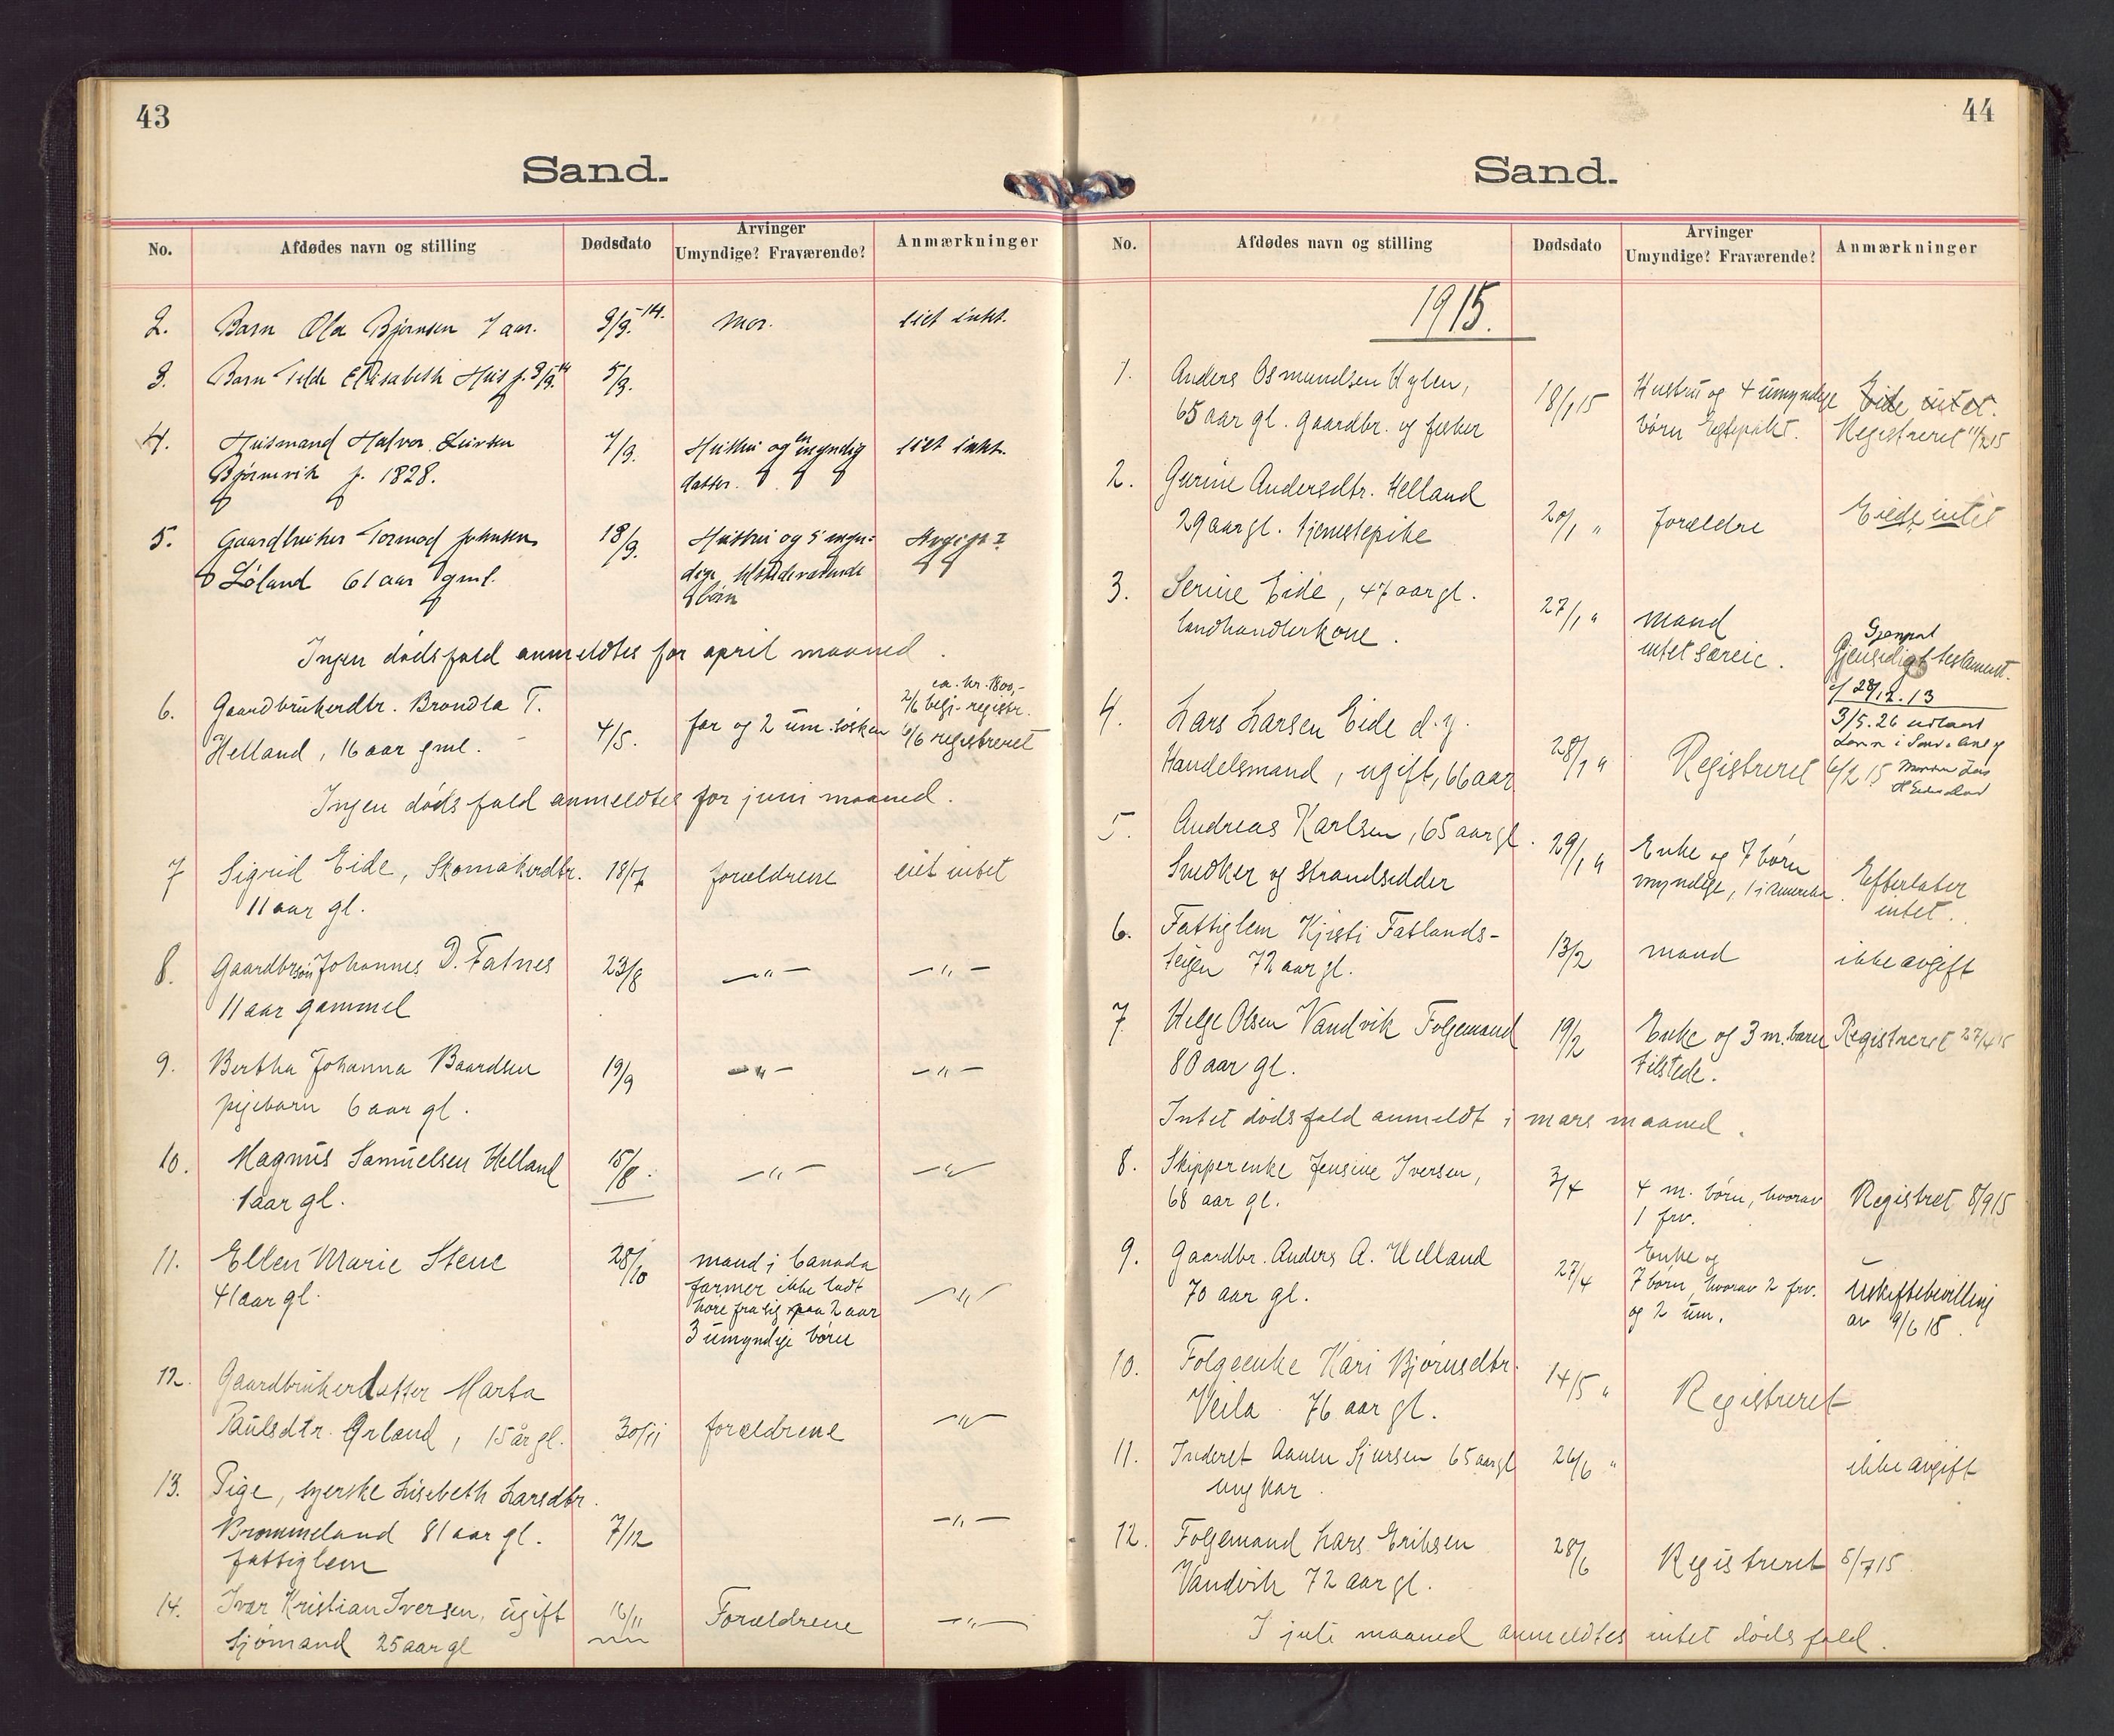 43
Sand.
No.
Afdødes navn og stilling
Dødsdato
Arvinger
Umyndige? Fraværende?
Anmærkninger
2. Barn Ola Bjørnsen 7 aar. 3/3.-14. Mor. eiet intet.
3. Barn Elisabeth Hus f. 3/3.14 5/3.
4. Husmand Halvor 7/3. Hustru og en myndig eiet intet.
Bjørnevik f. 1828. datter.
5. Gaardbruker Tormod Johnsen 18/3. Hustru og 5 myn-
Løland 61 aar gml. dige, tilstedeværende
børn
Ingen dødsfald anmeldtes for april maaned.
ca. kr. 1800,-
6. Gaardbrukerdtr. Brondla T. 2/6 begj. registr.
Helland, 16 aar gml. 4/5. far og 2 um. søsken 6/6 registreret
Ingen dødsfald anmeldtes for juni maaned.
7 Sigrid Eide, Skomakerdtr. 18/7 forældrene eiet intet
11 aar gl.
8. Gaardbrsøn Johannes D. Fatnes 23/8 —"— —"—
11 aar gammel
9. Bertha Johanna Baardsen 19/9 —"— —"—
pigebarn 6 aar gl.
10. Magnus Samuelsen Helland 15/8. —"— —"—
1 aar gl.
11. Ellen Marie Stene 28/10 mand i Canada
41 aar gl. farmer ikke ladt —"—
høre fra sig paa 2 aar
3 umyndige børn
12. Gaardbrukerdatter Marta
Paulsdtr. Ørland, 15 år gl. 30/11 forældrene —"—
13. Pige, syerske Lisebeth Larsdtr.
Brommeland 81 aar gl. 7/12 —"—
fattiglem
14. Ivar Kristian Iversen, ugift 16/11 Forældrene —"—
Sjømand 25 aar gl
44
Sand.
No.
Afdødes navn og stilling
Dødsdato
Arvinger
Umyndige? Fraværende?
Anmærkninger
1915.
1. Anders Osmundsen Hylen, 18/1 15 Hustru og 4 umyndige Eide intet.
65 aar gl. gaardbr. og fisker børn Egtepakt. Registreret 11/2 15
2. Gurine Andersdtr. Helland
29 aar gl. tjenestepike 20/1 " forældre Eiede intet
3. Serine Eide, 47 aar gl. 27/1 " mand
landhandlerkone. intet særeie. Gjensidigt testament.
28/12.13
4. Lars Larsen Eide d.y. 3/5.26
Handelsmand, ugift, 66 aar 28/1 " Registreret 6/2 15
5. Andreas Karlsen, 65 aar gl. 29/1 " Enke og 7 børn
Snedker og Strandsidder myndige, 1 i Amerika. Efterlater
intet.
6. Fattiglem Kjirsti Fatlands-
teigen 72 aar gl. 13/2 mand ikke avgift
7. Helge Olsen Vandvik Folgemand 19/2 Enke og 3 m. barn Registreret 27/4 15
80 aar gl. tilstede.
Intet dødsfald anmeldt i mars maaned.
8. Skipperenke Jensine Iversen, 3/4 4 m. børn, hvorav Registret 8/9 15
68 aar gl. 1 frv.
9. Gaardbr. Anders A. Helland 27/4 Enke og
70 aar gl. 7 børn, hvorav 2 frv. Uskiftebevilling
og 2 um. av 9/6 15.
10. Folgeenke Kari Bjørnsdtr. 14/5 " Registreret
Veila 76 aar gl.
11. Inderst Aanen Sjursen 65 aar gl 26/6 " ikke avgift
ungkar.
12. Folgemand Lars Eriksen 28/6 Registreret 5/7 15
Vandvik 72 aar gl.
I juli maaned anmeldtes intet dødsfald.